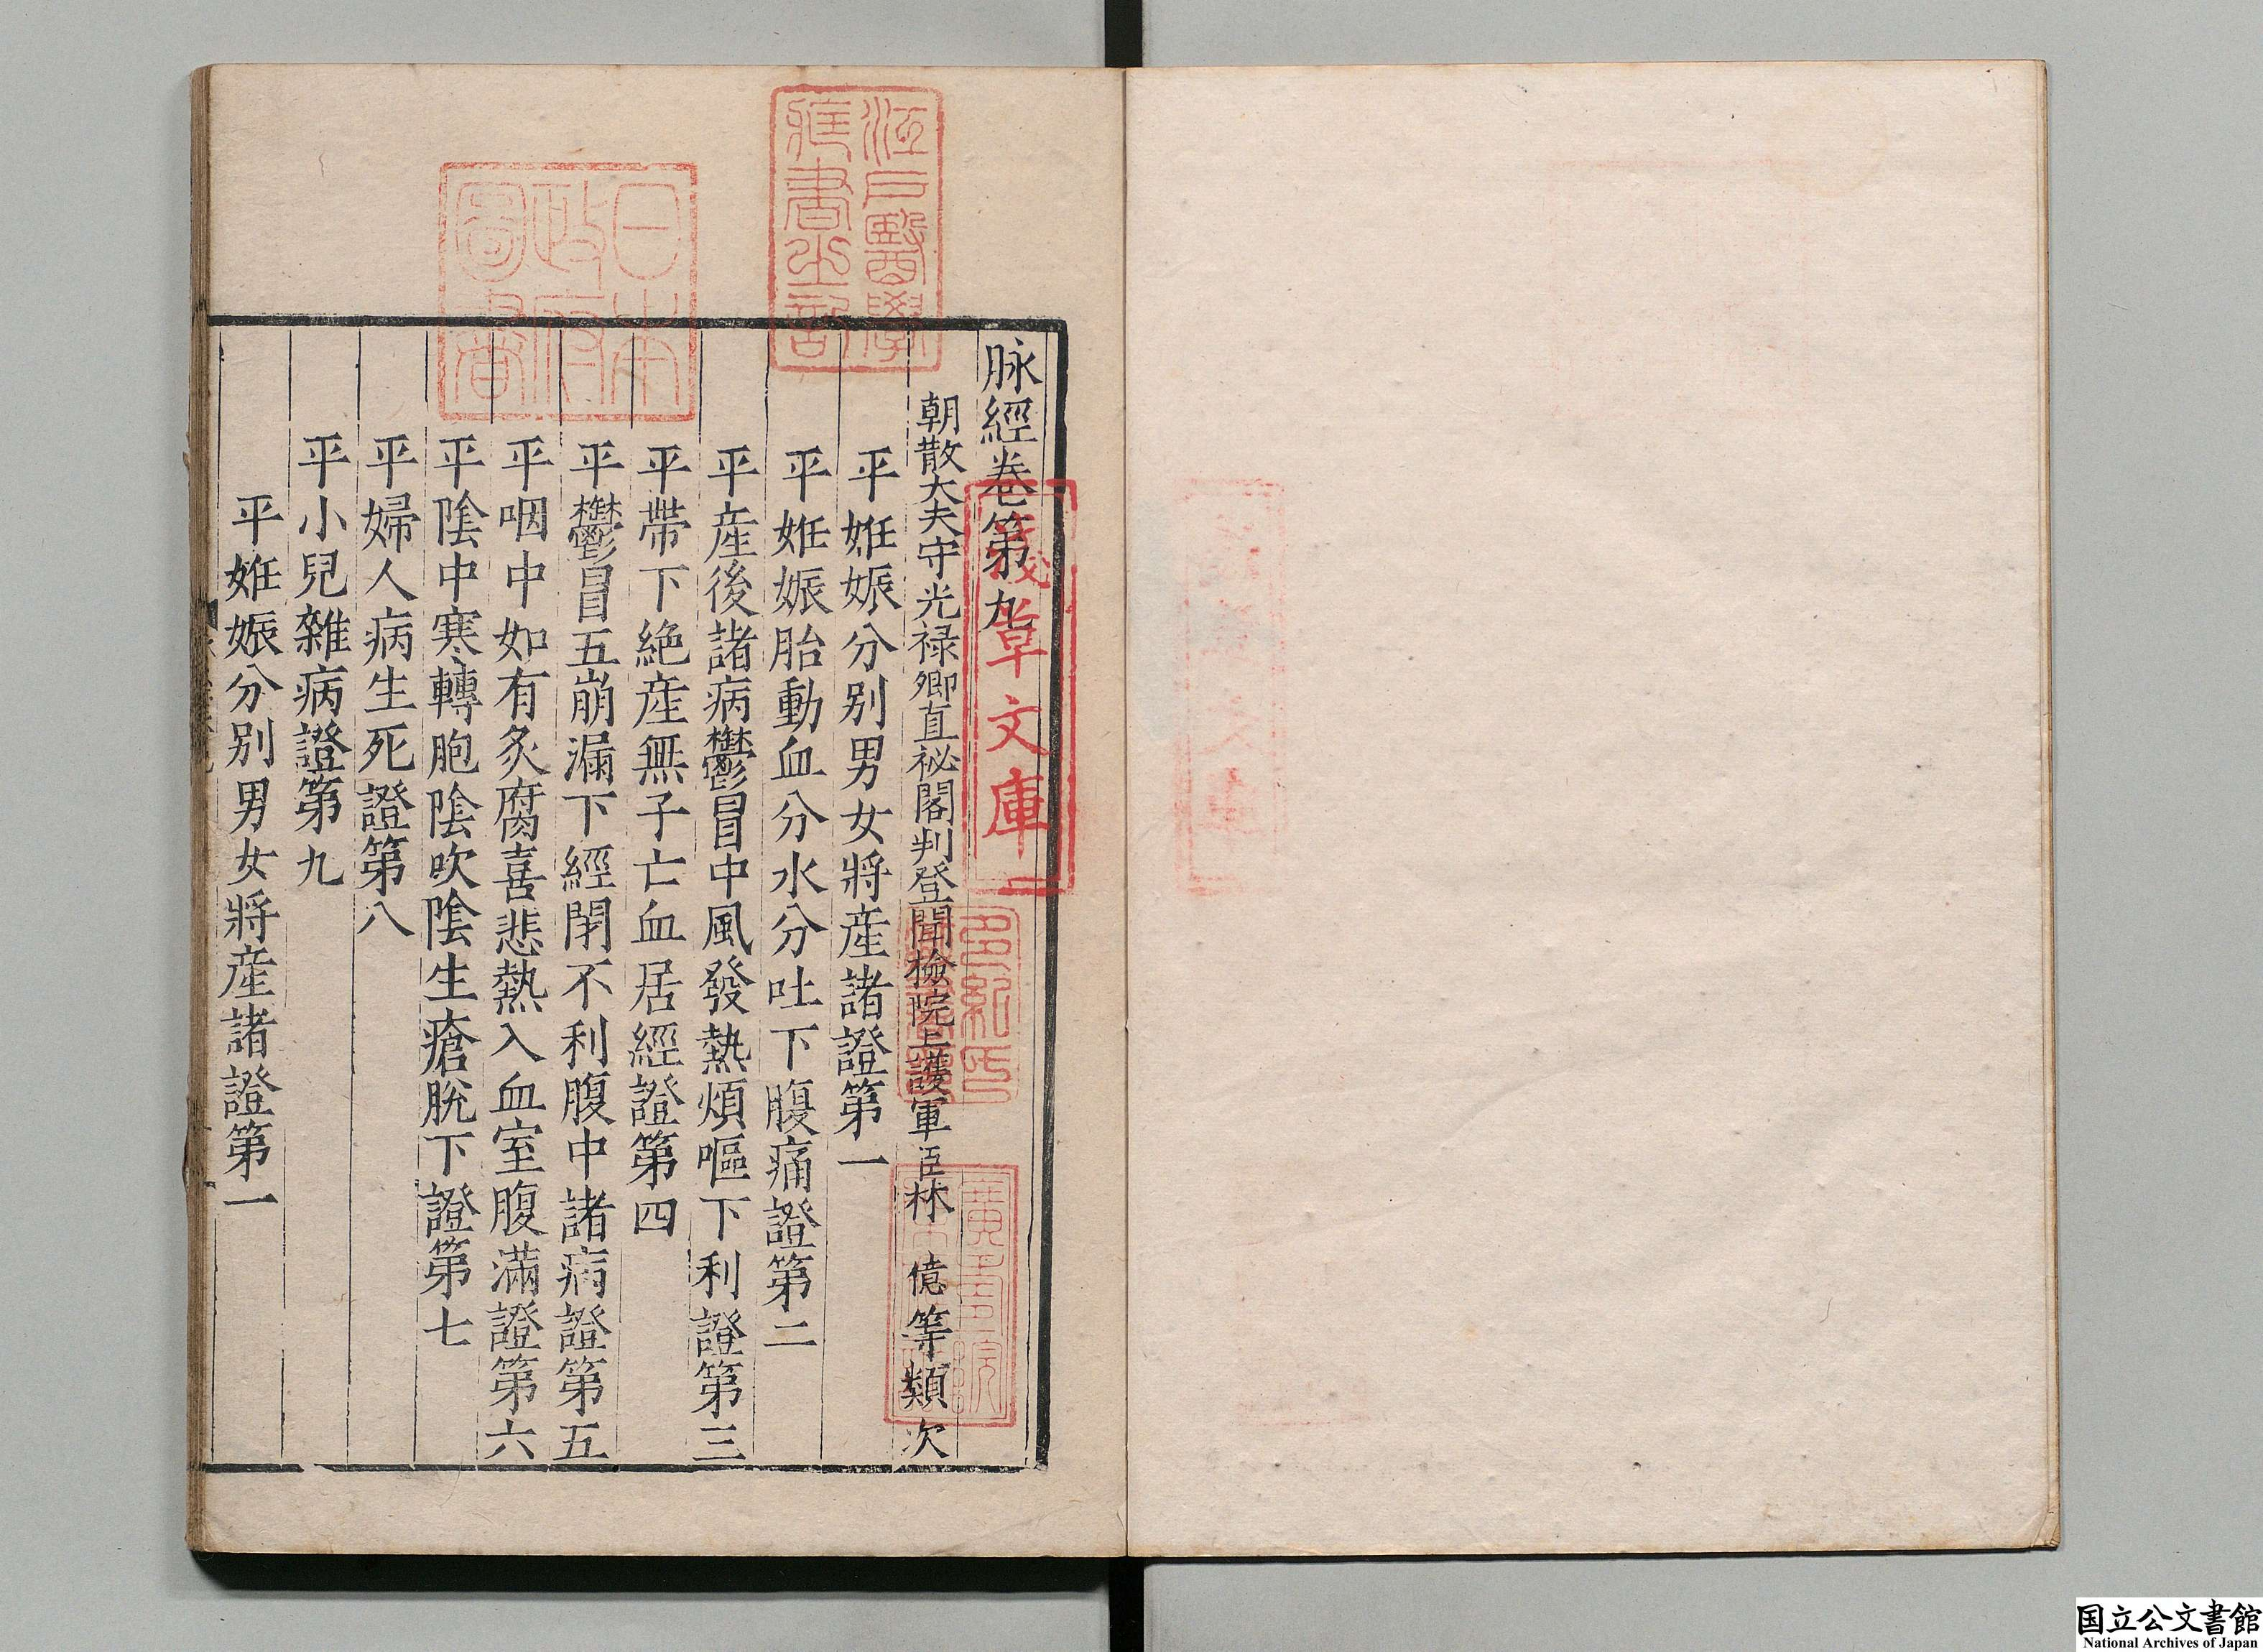 脉經卷第九
朝散大夫守光禄卿直祕閣判登聞檢院上護軍臣林億等類次
平姙娠分别男女將産諸證第一
平姙娠胎動血分水分吐下腹痛證第二
平産後諸病鬱冒中風發熱煩嘔下利證第三
平帶下絶産無子亡血居經證第四
平鬱冒五崩漏下經閉不利腹中諸病證第五
平咽中如有炙腐喜悲熱入血室腹滿證第六
平陰中寒轉胞陰吹陰生瘡脫下證第七
平婦人病生死證第八
平小兒雜病證第九
平姙娠分别男女將産諸證第一
江戸醫學
藏書之記
日本
政府
圖書
章文庫
多紀氏
國立公文書館
National Archives of Japan